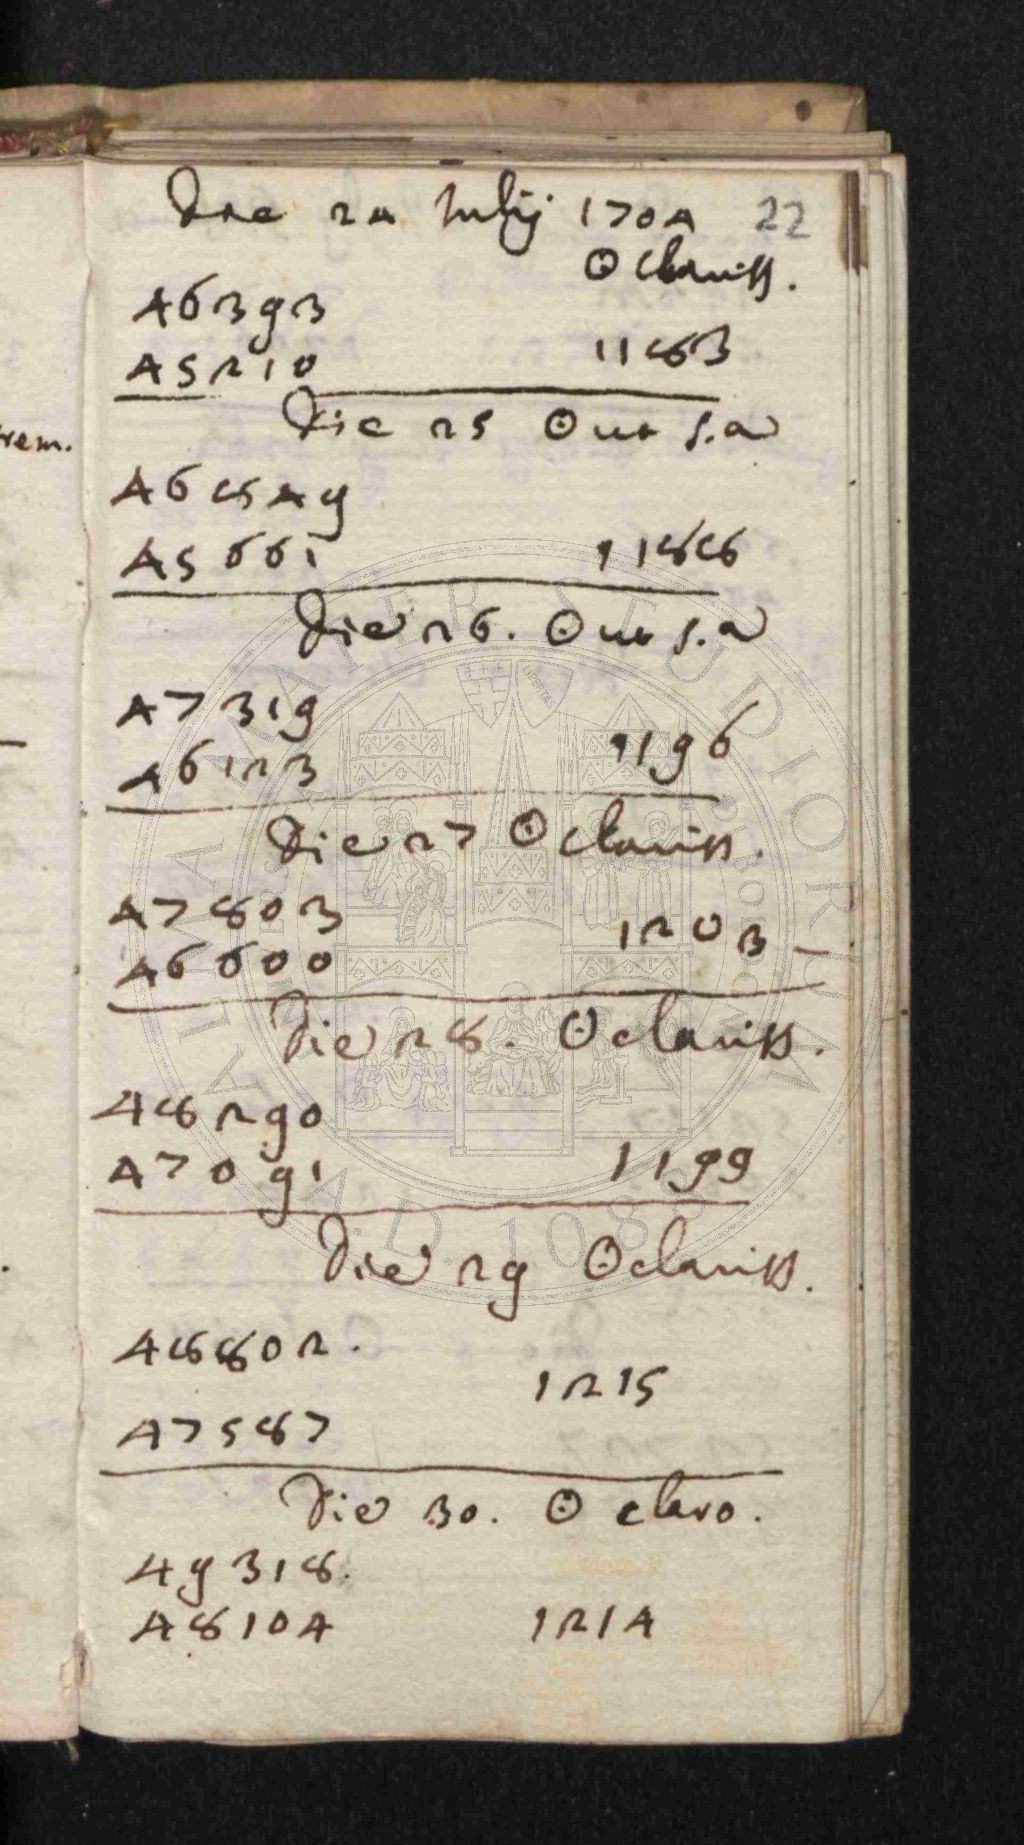 Die 24 Julij 1704 22
☉ clariss.
46393
45210 1183
Die 25 ☉ ut s.a
46849
45661 1188
Die 26. ☉ ut s.a
47319
46123 1196
Die 27 ☉ clariss.
47803
46600 1203
Die 28. ☉ clariss.
48290
47091 1199
Die 29 ☉ clariss.
48802.
1215
47587
Die 30. ☉ claro.
49318.
48104 1214
ALMA MATER STUDIORUM
A.D. 1088